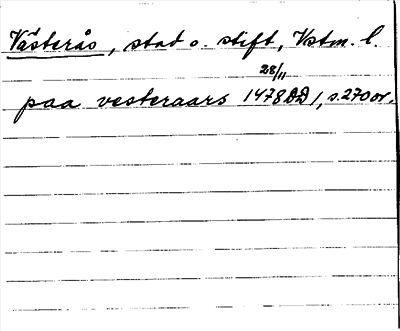 Västerås, stad o. stift, Vstm. l.
28/11
paa vesteraars 1478 DD 1, s. 270 or.